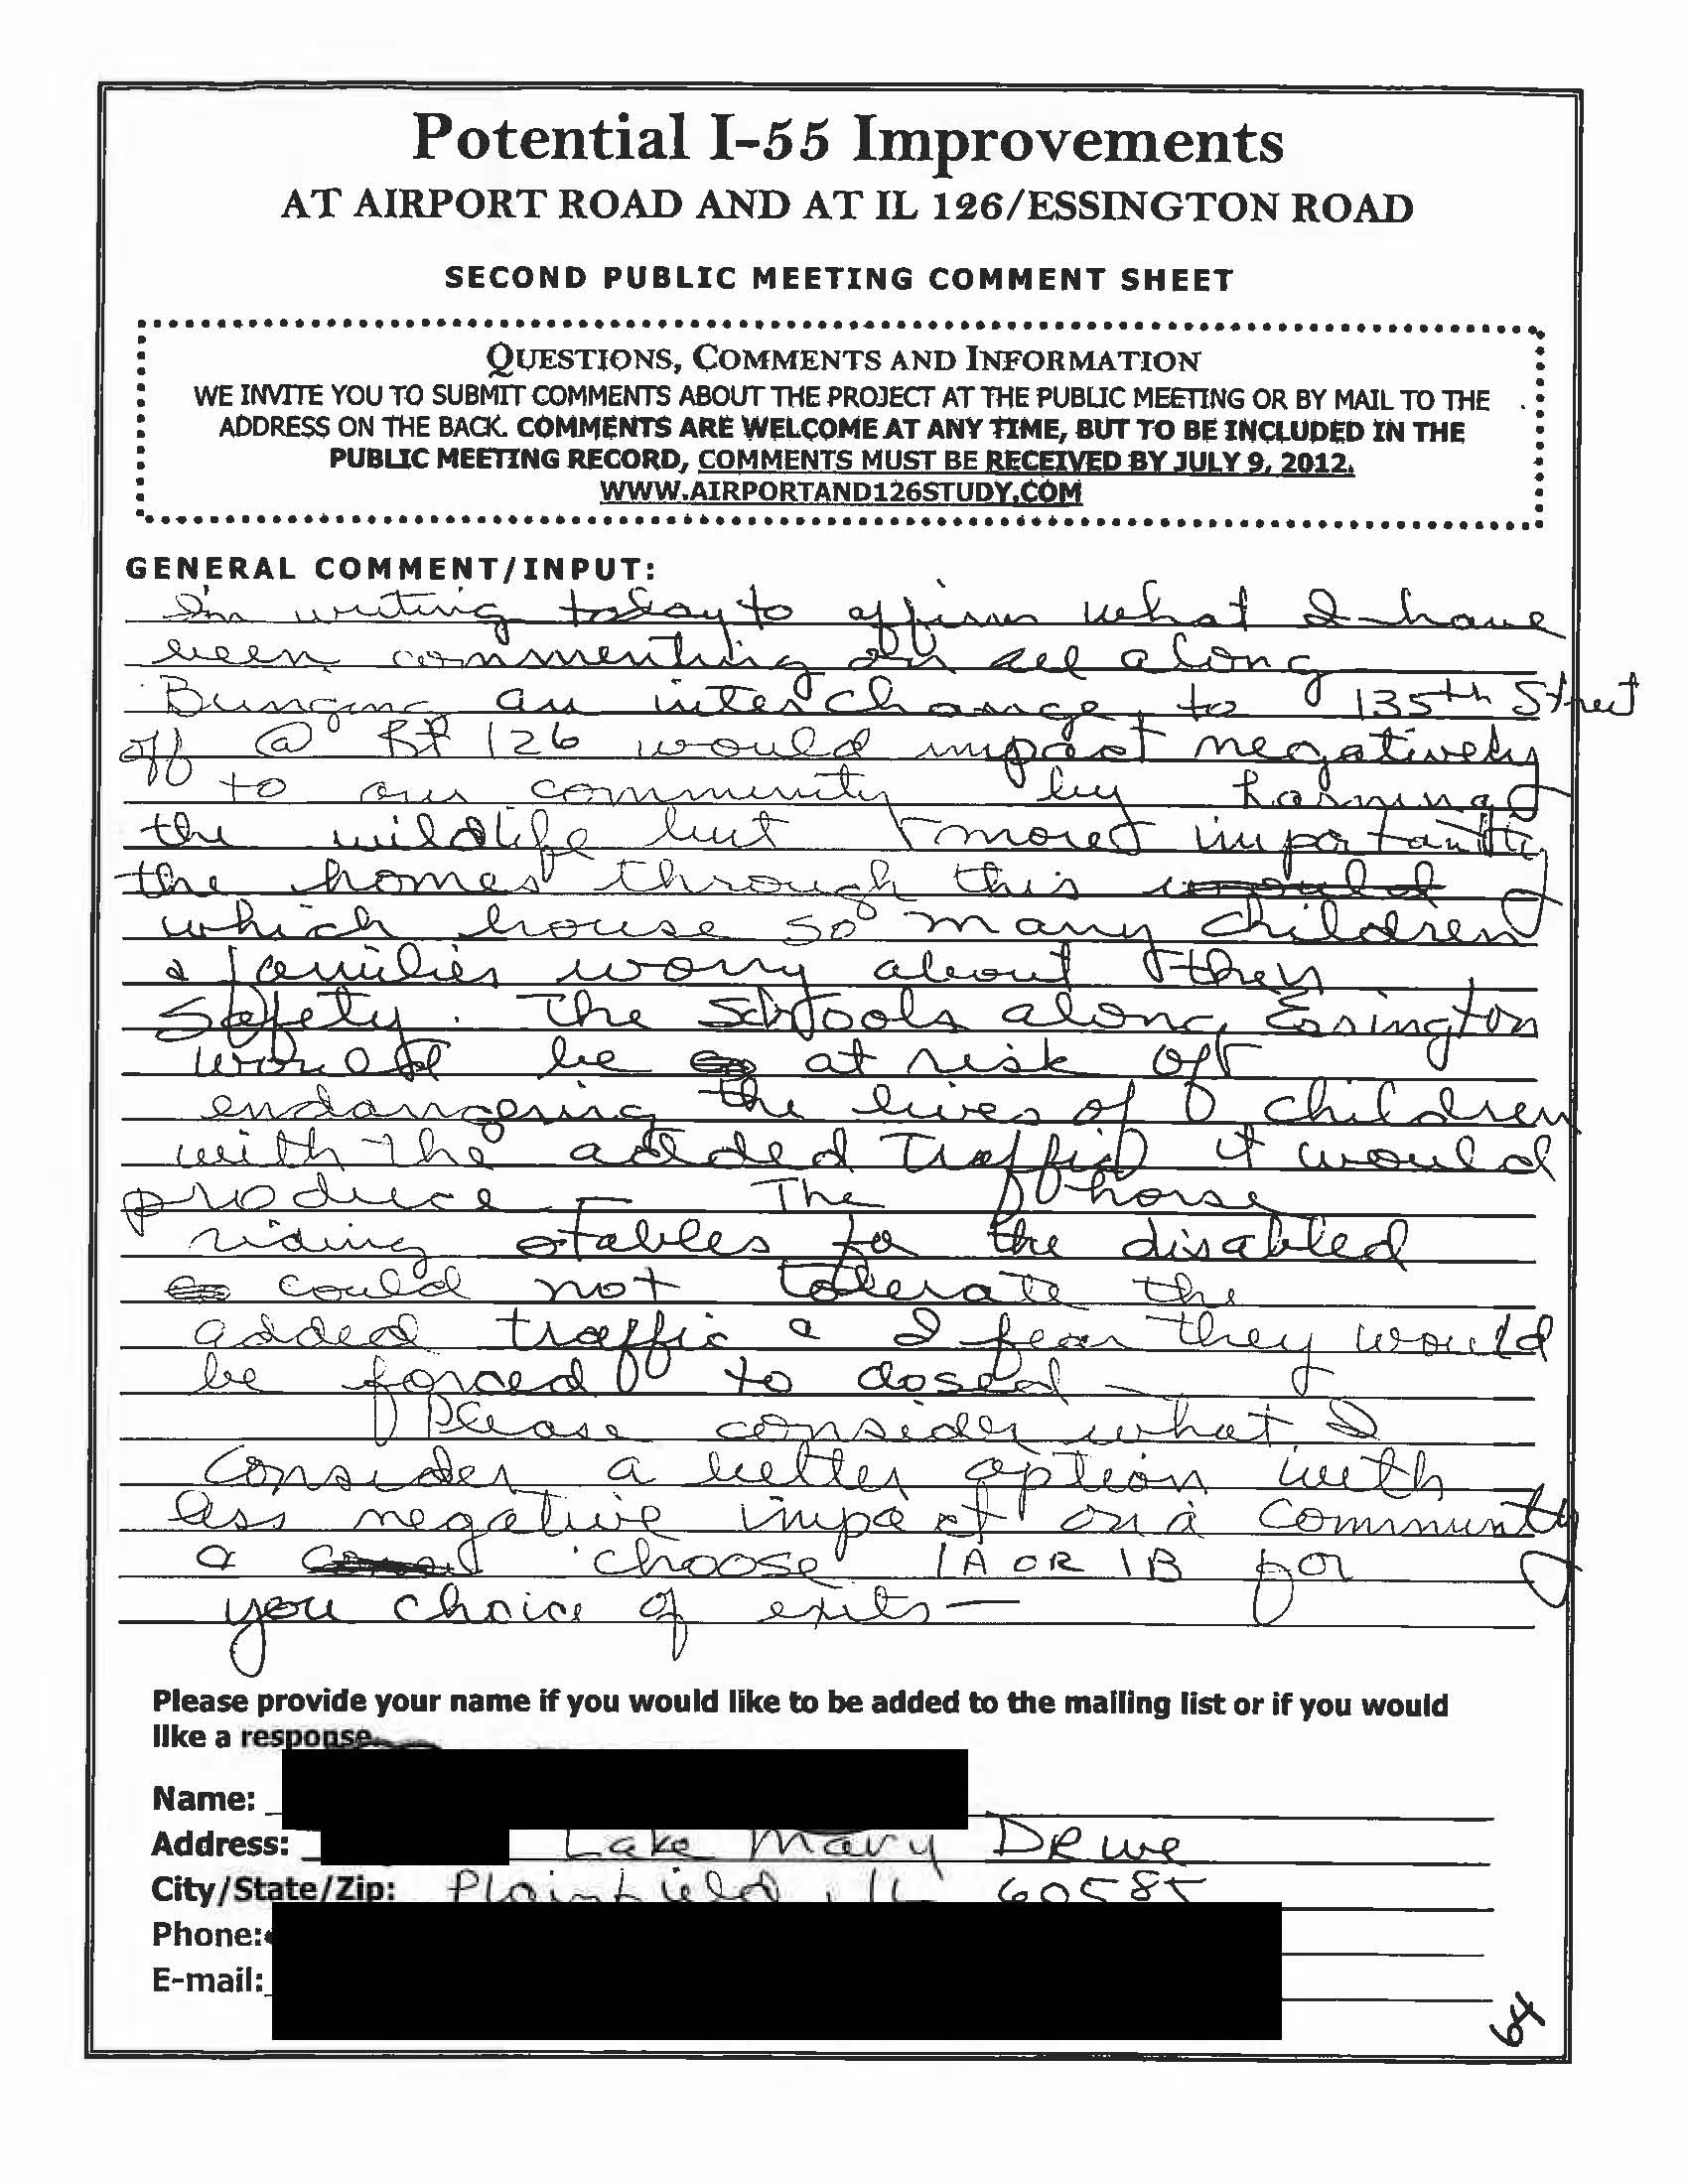 Potential I-55 Improvements
AT AIRPORT ROAD AND AT IL 126/ESSINGTON ROAD
SECOND PUBLIC MEETING COMMENT SHEET
QUESTIONS, COMMENTS AND INFORMATION
WE INVITE YOU TO SUBMIT COMMENTS ABOUT THE PROJECT AT THE PUBLIC MEETING OR BY MAIL TO THE
ADDRESS ON THE BACK. COMMENTS ARE WELCOME AT ANY TIME, BUT TO BE INCLUDED IN THE
PUBLIC MEETING RECORD, COMMENTS MUST BE RECEIVED BY JULY 9, 2012.
WWW.AIRPORTAND126STUDY.COM
GENERAL COMMENT/INPUT:
I'm writing today to affirm what I have
been commenting on all along
Bringing an interchange to 135th Street
off @ Rt 126 would impact negatively
to our community by harming
the wildlife but more importantly
the homes through this would
which house so many children
& families worry about their
safety. The schools along Essington
would be at risk of
endangering the lives of children
with the added traffic it would
produce - The horse
riding stables for the disabled
could not tolerate the
added traffic & I fear they would
be forced to closed -
Please consider what I
consider a better option with
less negative impact on a community
& choose 1A OR 1B for
you choice of exits -
Please provide your name if you would like to be added to the mailing list or if you would
like a response
Name:
Address: Lake Mary Drive
City/State/Zip: Plainfield, IL 60585
Phone:
E-mail:
64